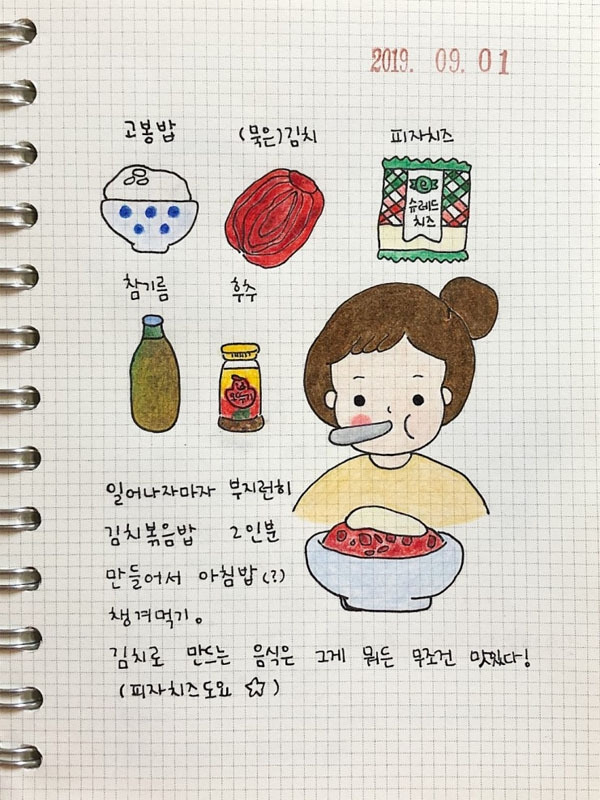 2019. 09. 01
고봉밥 (묵은)김치 피자치즈
슈레드
치즈
참기름 후추
일어나자마자 부지런히
김치볶음밥 2인분
만들어서 아침밥(?)
챙겨먹기。
김치로 만드는 음식은 그게 뭐든 무조건 맛있다!
(피자치즈도요 ☆)